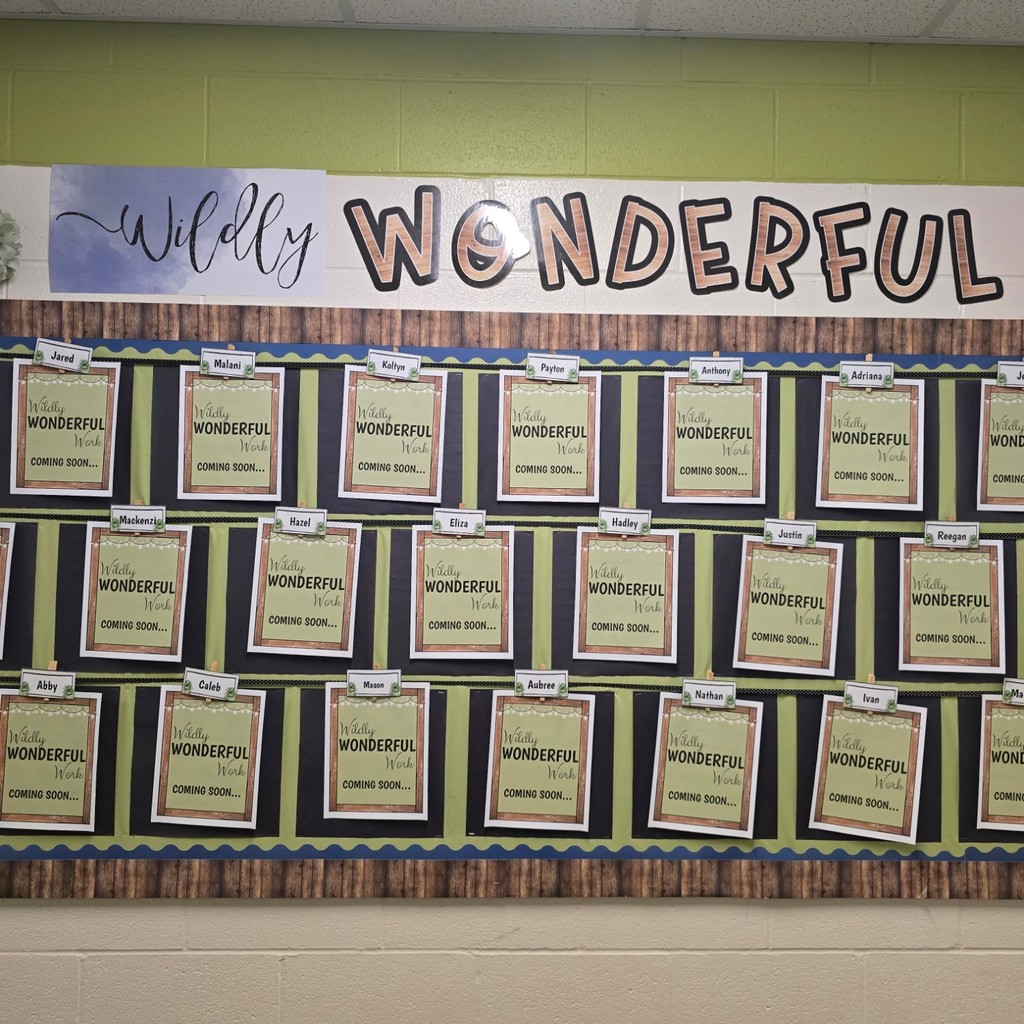 Wildly WONDERFUL
Jared
Wildly
WONDERFUL
Work
COMING SOON...
Malani
Wildly
WONDERFUL
Work
COMING SOON...
Koltyn
Wildly
WONDERFUL
Work
COMING SOON...
Payton
Wildly
WONDERFUL
Work
COMING SOON...
Anthony
Wildly
WONDERFUL
Work
COMING SOON...
Adriana
Wildly
WONDERFUL
Work
COMING SOON...
Wildly
COMING
Mackenzi
Wildly
WONDERFUL
Work
COMING SOON...
Hazel
Wildly
WONDERFUL
Work
COMING SOON...
Eliza
Wildly
WONDERFUL
Work
COMING SOON...
Hadley
Wildly
WONDERFUL
Work
COMING SOON...
Justin
Wildly
WONDERFUL
Work
COMING SOON...
Reegan
Wildly
WONDERFUL
Work
COMING SOON...
Abby
Wildly
WONDERFUL
Work
COMING SOON...
Caleb
Wildly
WONDERFUL
Work
COMING SOON...
Mason
Wildly
WONDERFUL
Work
COMING SOON...
Aubree
Wildly
WONDERFUL
Work
COMING SOON...
Nathan
Wildly
WONDERFUL
Work
COMING SOON...
Ivan
Wildly
WONDERFUL
Work
COMING SOON...
Wildly
COMING